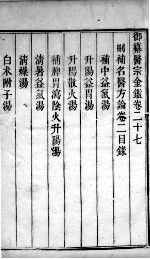 御纂醫宗金鑑卷二十七
刪補名醫方論卷二目錄
補中益氣湯
升陽益胃湯
升陽散火湯
補脾胃瀉陰火升陽湯
清暑益氣湯
清燥湯
白朮附子湯